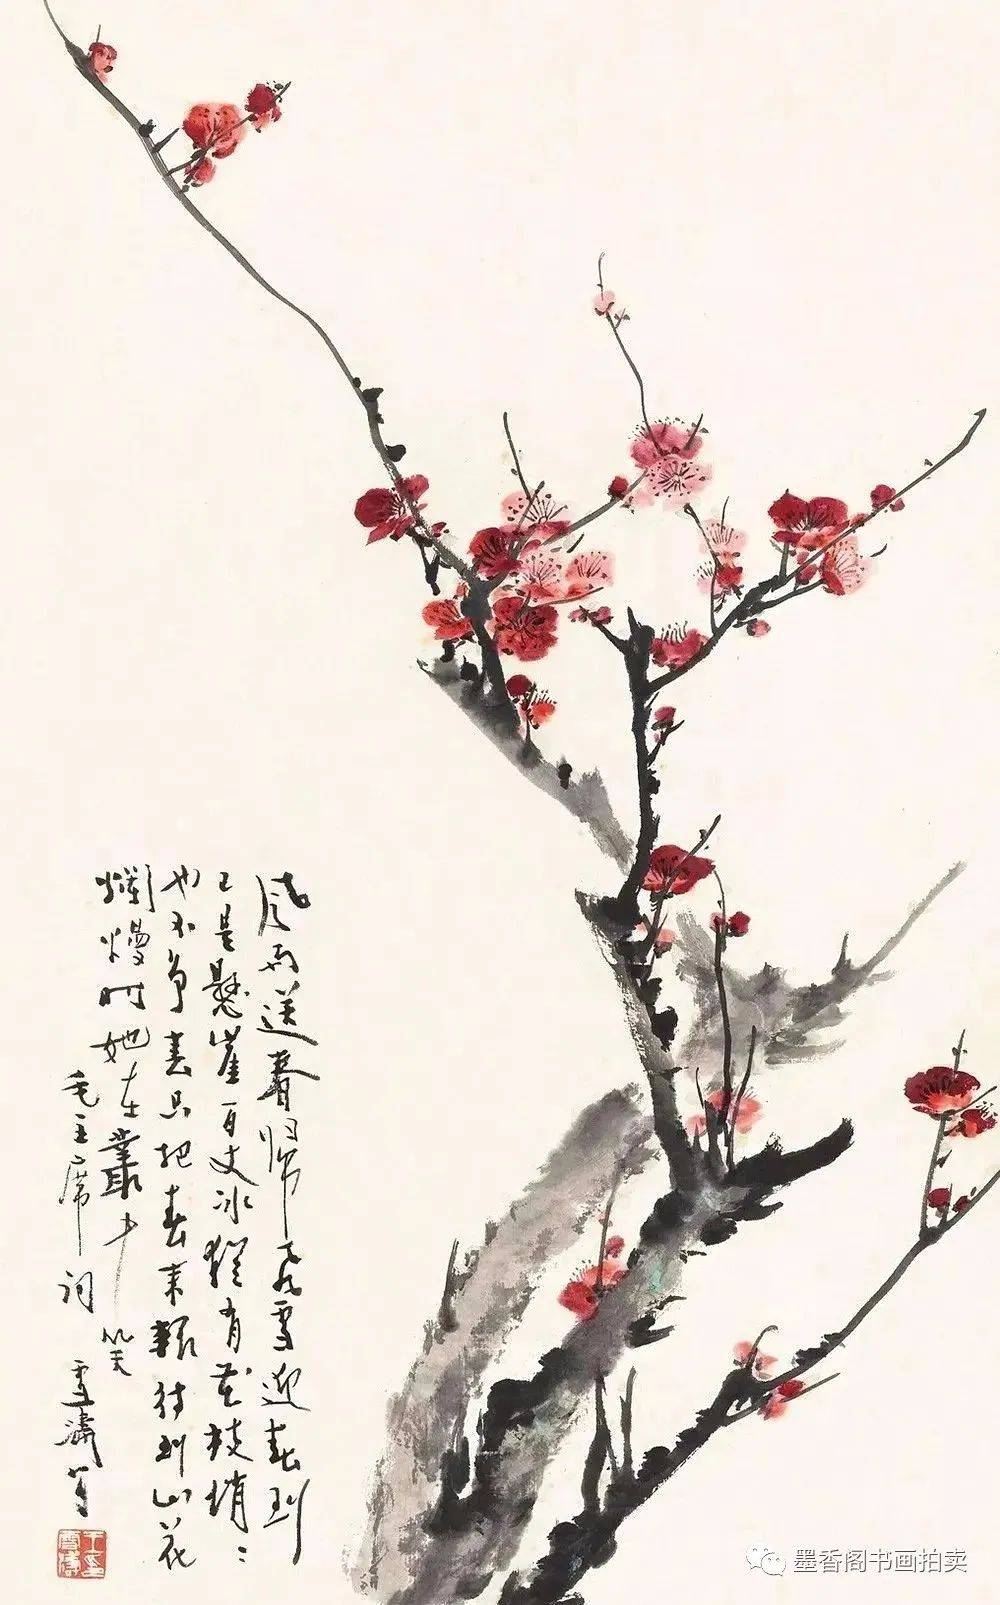 风雨送春歸飛雪迎春到
已是懸崖百丈冰猶有花枝俏〻
也不争春只把春来報待到山花
爛熳时她在叢中笑
毛主席词 雪濤写
王雪濤印
墨香阁书画拍卖